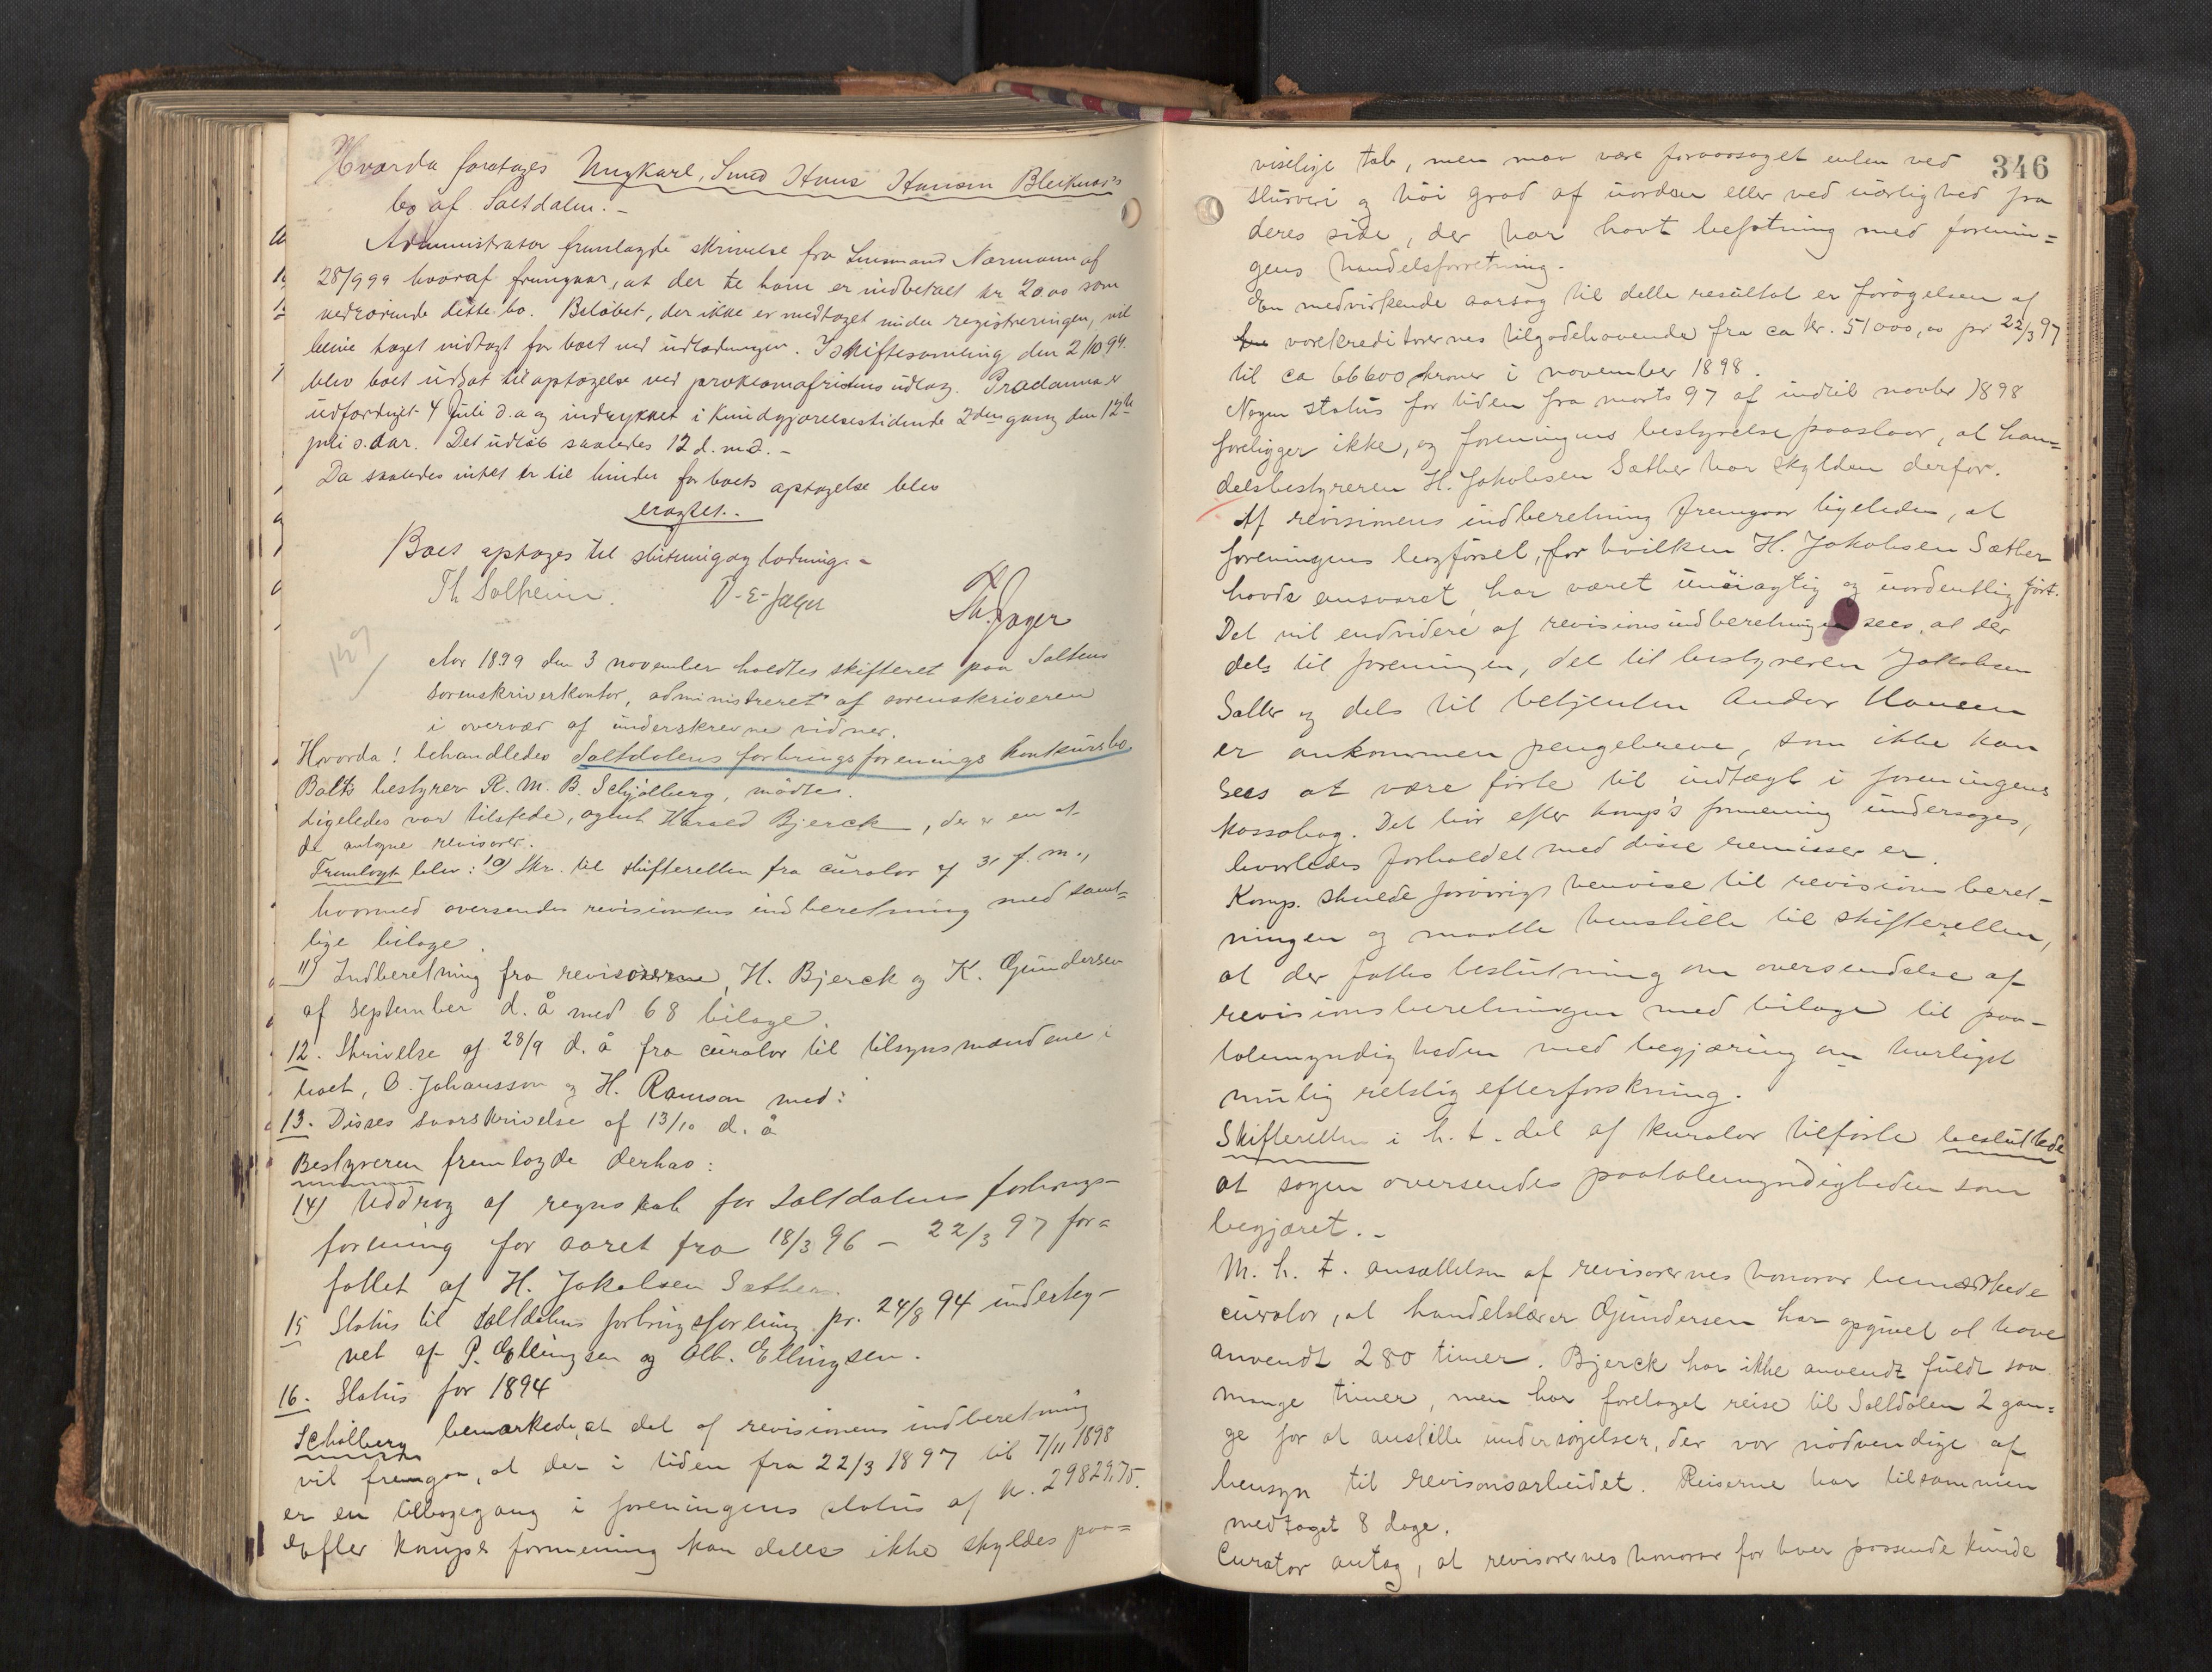 Hvorda foretoges Ungkarl, Smed Hans Hansen Bleiknes's
bo af Saltdalen.-
Administrator fremlagde skrivelse fra Lensmand Normann af
28/9 99 hvoraf fremgaar, at der til ham er indbetalt kr 20.00 som
vedrørende dette bo. Beløbet, der ikke er medtaget under registreringen, vil
blive taget indtægt for boet ved udlodningen. I skiftesamling den 2/10 94
blev boet udsat til optagelse ved proklamafristens udløb. Proclama er
udfærdiget 4 Juli d.a og indrykket i Kundgjørelsestidende 2den gang den 12te
juli s. aar. Det udløb saaledes 12 d. md. -
Da saaledes intet er til hinder for boets optagelse blev
eragtet:
Boet optages til slutning og lodning. -
Th Solheim. D-E-Jager
Th. Jager
129
Aar 1899 den 3 november holdtes skifteret paa Saltens
sorenskriverkontor, administreret af sorenskriveren
i overvær af underskrevne vidner.
Hvorda! behandledes Saltdalens forbrugsforenings konkursbo
Boets bestyrer R. M. B. Schjølberg, mødte.
Ligeledes var tilstede, agent Harald Bjerck, der er en af
de antagne revisorer.
Fremlagt blev: 10) Skr. til skifteretten fra curator af 31 f. m.,
hvormed oversendes revisionens indberetning med samt=
lige bilage.
11) Indberetning fra revisorerne, H. Bjerck og K. Gundersen
af september d. å med 68 bilage.
12. Skrivelse af 28/9 d. å fra curator til tilsynsmændene i
boet, O. Johansson og H. Ramson med:
13. Disses svarskrivelse af 13/10 d. å
Bestyreren fremlagde derhos:
14) Uddrag af regnskab for Saltdalens forbrugs-
forening for aaret fra 18/3 96 - 22/3 97 for=
fattet af H. Jakobsen Sæther.
15 Status til Saltdalens forbrugsforening pr. 24/8 94 underteg-
net af P. Ellingsen og Alb. Ellingsen.
16. Status for 1894
Schølberg bemærkede, at det af revisionens indberetning
vil fremgaa, at der i tiden fra 22/3 1897 til 7/11 1898
er en tilbagegang i foreningens status af kr. 29829.75.
Efter komps formening kan dette ikke skyldes paa=
346
viselige tab, men maa være foraarsaget enten ved
slurveri og høi grad af uorden eller ved uærlighed fra
deres side, der har havt befatning med forenin=
gens handelsforretning.
En medvirkende aarsag til dette resultat er forøgelsen af
varekreditorernes tilgodehavende fra ca kr. 51000,00 pr 22/3 97
til ca 66600 kroner i november 1898.
Nogen status for tiden fra marts 97 af indtil novbr 1898
foreligger ikke, og foreningens bestyrelse paastaar, at han=
delsbestyreren H. Jakobsen Sæther har skylden derfor.
Af revisionens indberetning fremgaar ligeledes, at
foreningens bogførsel, for hvilken H. Jakobsen Sæther
havde ansvaret, har været unøiagtig og uordentlig ført.
Det vil endvidere af revisionsindberetningen sees, at der
dels til foreningen, del til bestyreren Jakobsen
Sæther og dels til betjenten Andor Hansen
er ankommen pengebreve, som ikke kan
sees at være førte til indtægt i foreningens
kassabog. Det bør efter komp's formening undersøges,
hvorledes forholdet med disse remisser er.
Komp. skulde forøvrigt henvise til revisionsberet-
ningen og maatte henstille til skifteretten,
at der fattes beslutning om oversendelse af
revisionsberetningen med bilage til paa-
talemyndigheden med begjæring om hurligst
mulig retslig efterforskning.
Skifteretten i h. t. det af kurator tilførte besluttede
at sagen oversendes paatalemyndigheden som
begjæret. -
M. h. t. ansættelsen af revisorernes honorar bemærkede
curator, at handelslærer Gundersen har opgivet at have
anvendt 280 timer. Bjerck har ikke anvendt fuldt saa
mange timer, men har foretaget reise til Saltdalen 2 gan=
ge for at anstille undersøgelser, der var nødvendige af
hensyn til revisonsarbeidet. Reiserne har tilsammen
medtaget 8 dage.
Curator antog, at revisorernes honorar for hver passende kunde